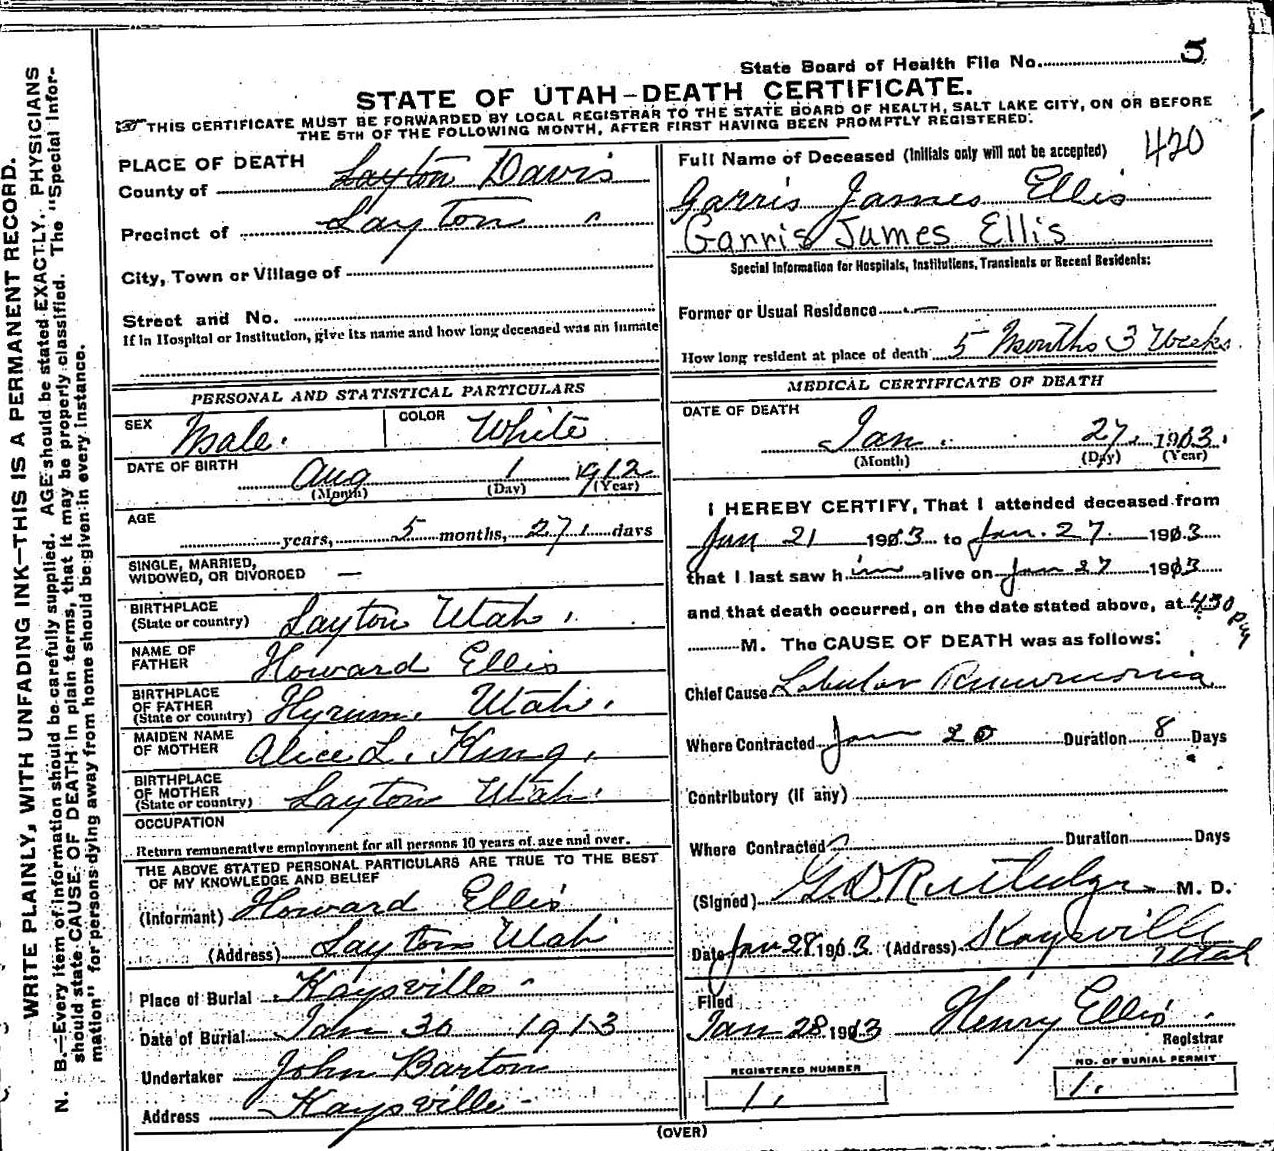 State Board of Health File No. 5
STATE OF UTAH—DEATH CERTIFICATE.
THIS CERTIFICATE MUST BE FORWARDED BY LOCAL REGISTRAR TO THE STATE BOARD OF HEALTH, SALT LAKE CITY, ON OR BEFORE
THE 5TH OF THE FOLLOWING MONTH, AFTER FIRST HAVING BEEN PROMPTLY REGISTERED.
WRITE PLAINLY, WITH UNFADING INK—THIS IS A PERMANENT RECORD.
N. B.—Every item of information should be carefully supplied. AGE should be stated EXACTLY. PHYSICIANS
should state CAUSE OF DEATH in plain terms, that it may be properly classified. The "Special Infor-
mation" for persons dying away from home should be given in every instance.
PLACE OF DEATH
County of Layton Davis
Precinct of Layton
City, Town or Village of
Street and No.
If in Hospital or Institution, give its name and how long deceased was an inmate
PERSONAL AND STATISTICAL PARTICULARS
SEX Male. COLOR White
DATE OF BIRTH Aug 1 1912
(Month) (Day) (Year)
AGE
years, 5 months, 27 days
SINGLE, MARRIED,
WIDOWED, OR DIVORCED —
BIRTHPLACE
(State or country) Layton Utah.
NAME OF
FATHER Howard Ellis
BIRTHPLACE
OF FATHER
(State or country) Hyrum, Utah.
MAIDEN NAME
OF MOTHER Alice L. King.
BIRTHPLACE
OF MOTHER
(State or country) Layton Utah.
OCCUPATION
Return remunerative employment for all persons 10 years of age and over.
THE ABOVE STATED PERSONAL PARTICULARS ARE TRUE TO THE BEST
OF MY KNOWLEDGE AND BELIEF
(Informant) Howard Ellis
(Address) Layton Utah
Place of Burial Kaysville
Date of Burial Jan 30 1913
Undertaker John Barton
Address Kaysville
Full Name of Deceased (Initials only will not be accepted) 420
Garris James Ellis
Garris James Ellis
Special Information for Hospitals, Institutions, Transients or Recent Residents:
Former or Usual Residence
How long resident at place of death 5 Months 3 Weeks
MEDICAL CERTIFICATE OF DEATH
DATE OF DEATH
Jan. 27. 1913.
(Month) (Day) (Year)
I HEREBY CERTIFY, That I attended deceased from
Jan 21 1913 to Jan. 27. 1913
that I last saw him alive on Jan 27 1913
and that death occurred, on the date stated above, at 430 pm
M. The CAUSE OF DEATH was as follows:
Chief Cause Lobular Pneumonia
Where Contracted Jan 20 Duration 8 Days
Contributory (if any)
Where Contracted Duration Days
(Signed) G.D. Rutledge M. D.
Date Jan 28 1913 (Address) Kaysville
Utah
Filed
Jan 28 1913 Henry Ellis
Registrar
REGISTERED NUMBER
1.
NO. OF BURIAL PERMIT
1.
(OVER)